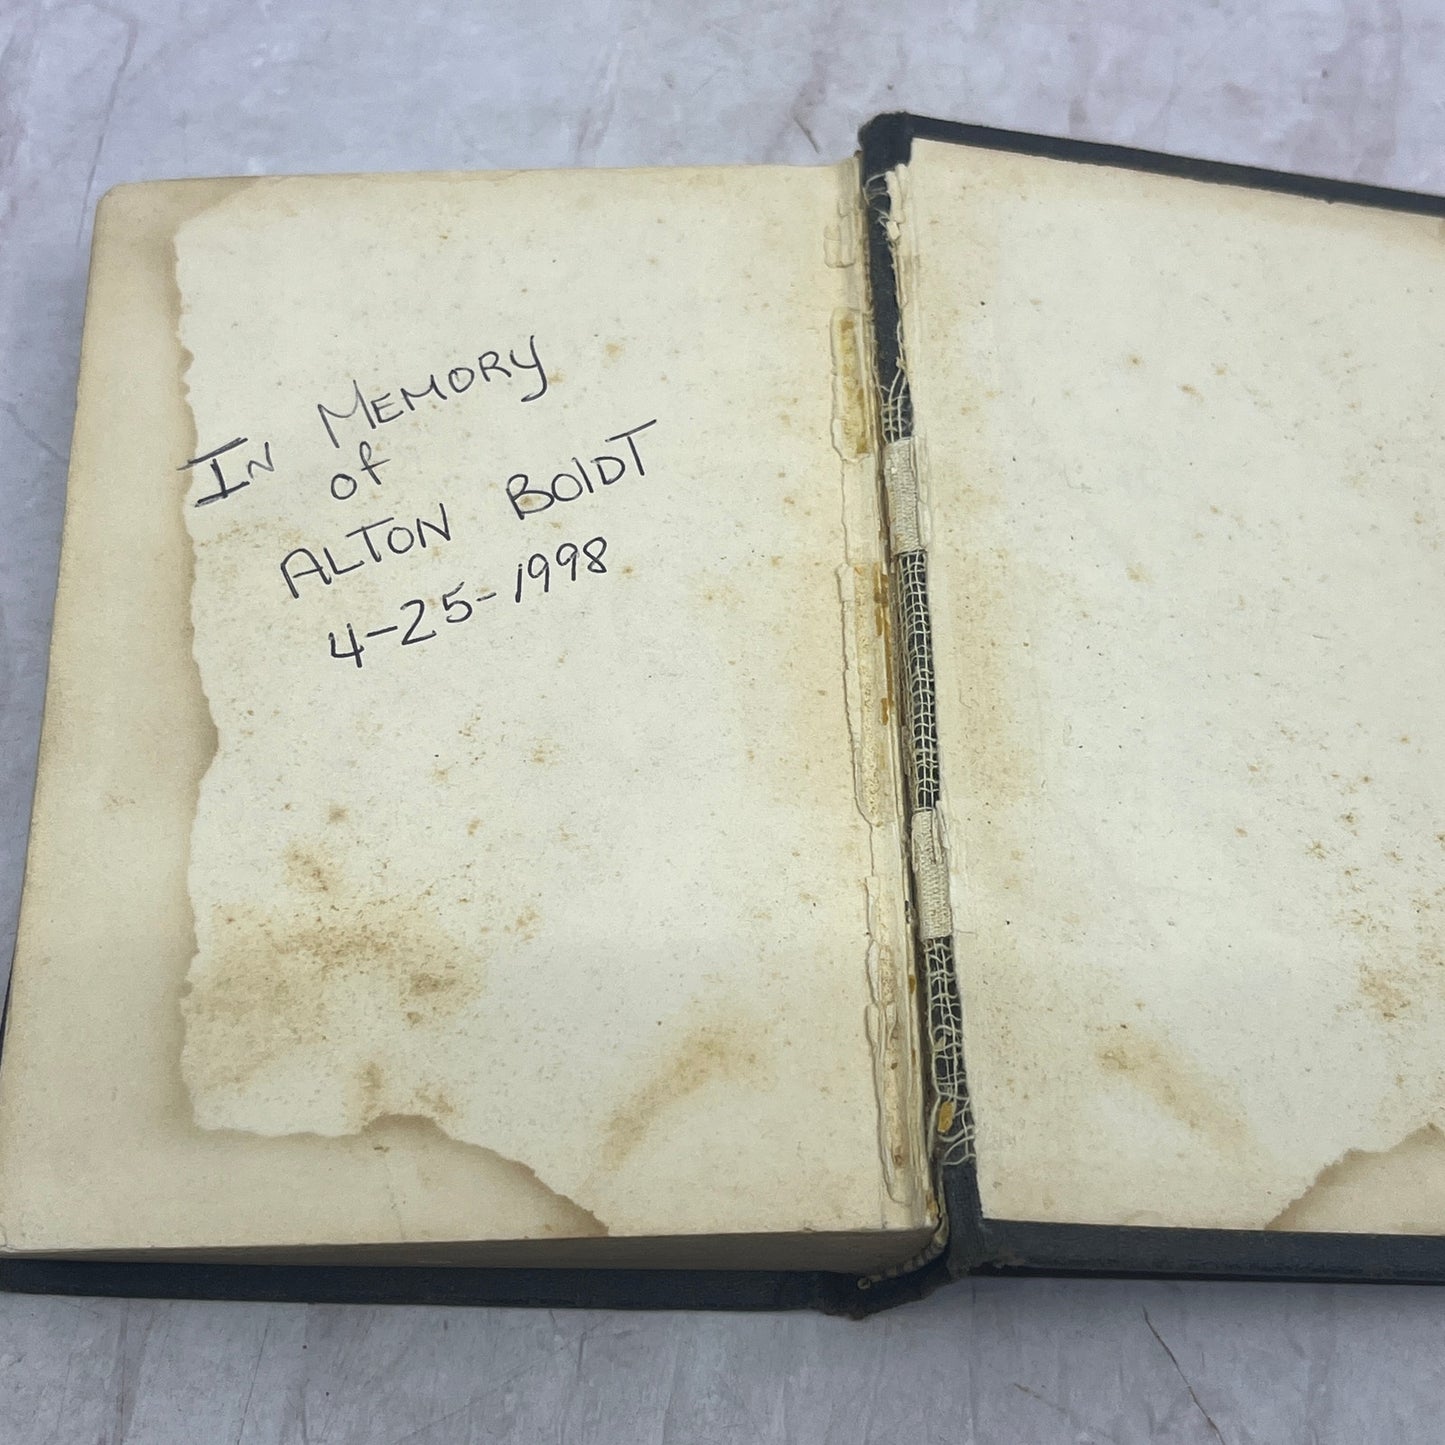 In MEMORY
of
ALTON BOldT
4-25-1998